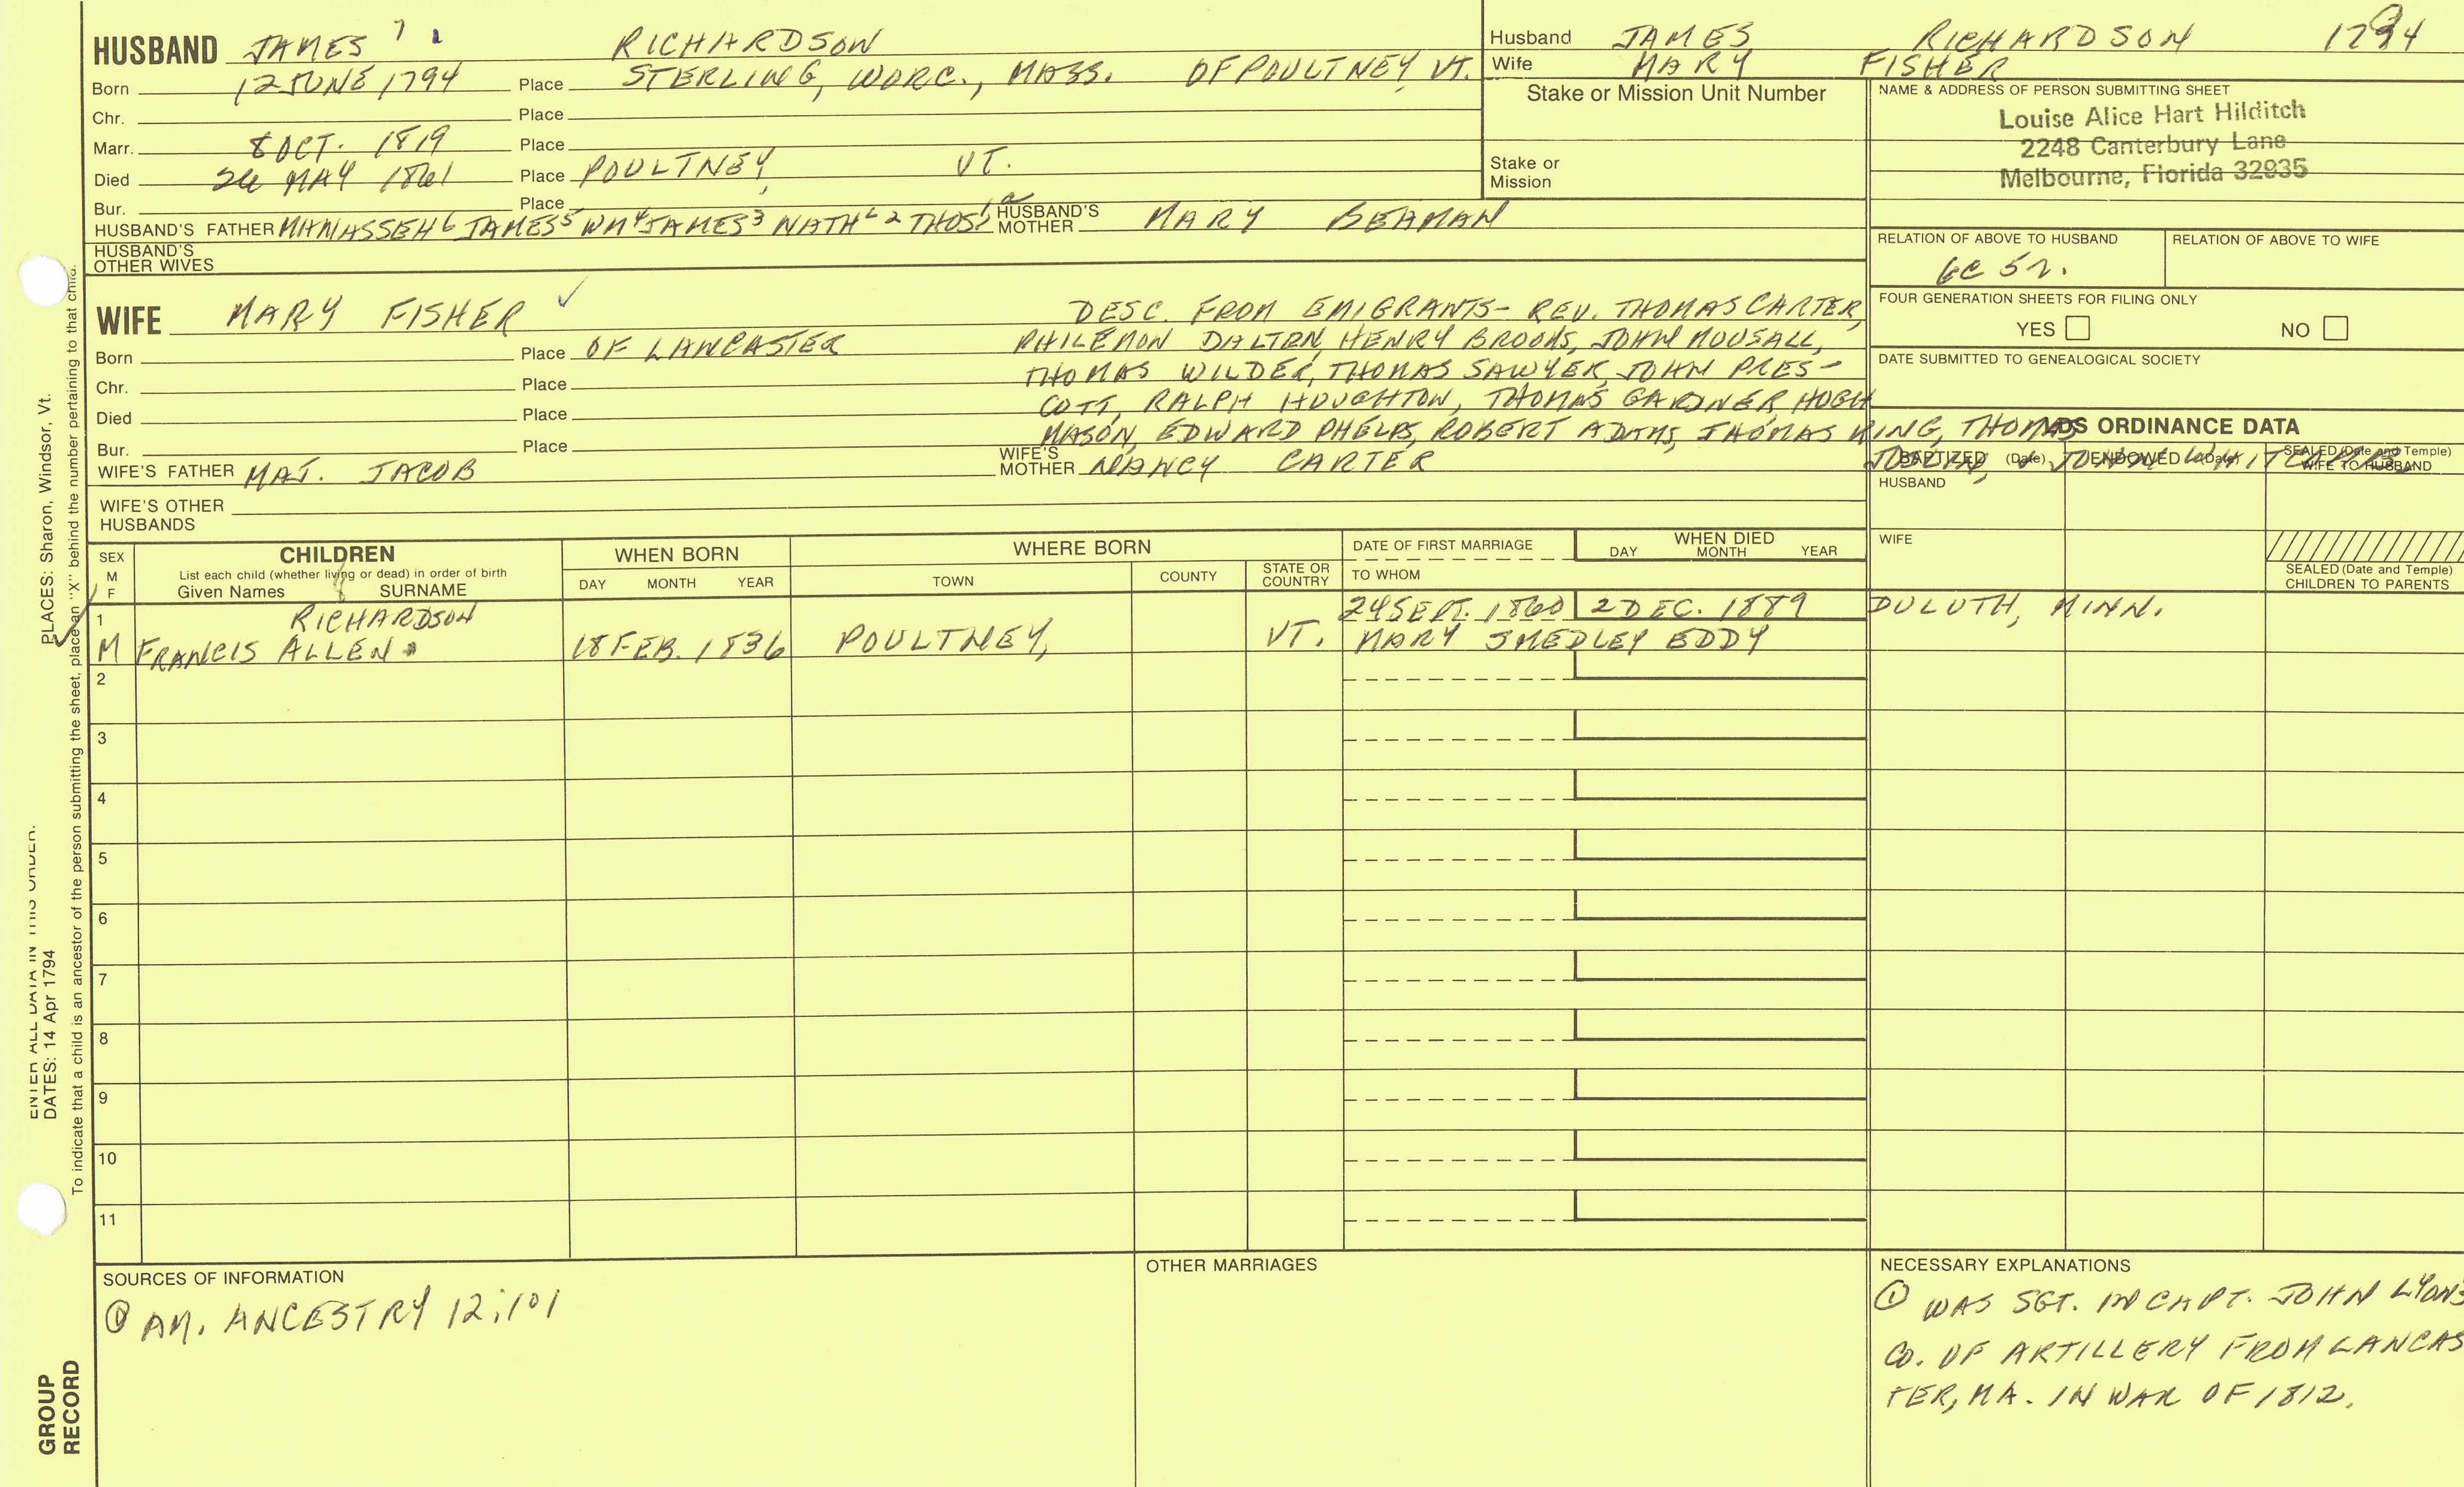 HUSBAND JAMES 7 1 RICHARDSON
Born 12 JUNE 1794 Place STERLING, WORC., MASS. OF POULTNEY, VT.
Chr. Place
Marr. 8 OCT. 1819 Place
Died MAY 1861 Place POULTNEY, VT.
Bur. Place
HUSBAND'S FATHER MANASSEH 6 JAMES 5 WM 4 JAMES 3 NATH L 2 THOS. 1 HUSBAND'S MOTHER MARY BEAMAN
HUSBAND'S OTHER WIVES
Husband JAMES RICHARDSON 1794
Wife MARY FISHER
Stake or Mission Unit Number
Stake or
Mission
NAME & ADDRESS OF PERSON SUBMITTING SHEET
Louise Alice Hart Hilditch
2248 Canterbury Lane
Melbourne, Florida 32935
RELATION OF ABOVE TO HUSBAND RELATION OF ABOVE TO WIFE
6C 5R.
FOUR GENERATION SHEETS FOR FILING ONLY
YES NO
DATE SUBMITTED TO GENEALOGICAL SOCIETY
WIFE MARY FISHER ✓
Born Place OF LANCASTER
Chr. Place
Died Place
Bur. Place
WIFE'S FATHER MAJ. JACOB WIFE'S MOTHER NANCY CARTER
WIFE'S OTHER
HUSBANDS
DESC. FROM EMIGRANTS- REV. THOMAS CARTER,
PHILEMON DALTON, HENRY BROOKS, JOHN MOUSALL,
THOMAS WILDER, THOMAS SAWYER, JOHN PRES-
COTT, RALPH HOUGHTON, THOMAS GARDNER, HUGH
MASON, EDWARD PHELPS, ROBERT ADAMS, THOMAS KING, THOMAS
JOSLIN, & JOHN WHITCOMB
LDS ORDINANCE DATA
BAPTIZED (Date) ENDOWED (Date) SEALED (Date and Temple)
WIFE TO HUSBAND
HUSBAND
WIFE
SEALED (Date and Temple)
CHILDREN TO PARENTS
SEX
M
F
CHILDREN
List each child (whether living or dead) in order of birth
Given Names SURNAME
WHEN BORN
DAY MONTH YEAR
WHERE BORN
TOWN COUNTY STATE OR COUNTRY
DATE OF FIRST MARRIAGE
TO WHOM
WHEN DIED
DAY MONTH YEAR
1 RICHARDSON 24 SEPT. 1860 2 DEC. 1889 DULUTH, MINN.
M FRANCIS ALLEN 18 FEB. 1836 POULTNEY, VT. MARY SMEDLEY EDDY
2
3
4
5
6
7
8
9
10
11
SOURCES OF INFORMATION
① AM. ANCESTRY 12:101
OTHER MARRIAGES
NECESSARY EXPLANATIONS
① WAS SGT. IN CAPT. JOHN LYONS
CO. OF ARTILLERY FROM LANCAS
TER, MA. IN WAR OF 1812.
ENTER ALL DATA IN THIS ORDER:
PLACES: Sharon, Windsor, Vt.
DATES: 14 Apr 1794
To indicate that a child is an ancestor of the person submitting the sheet, place an "X" behind the number pertaining to that child.
GROUP
RECORD